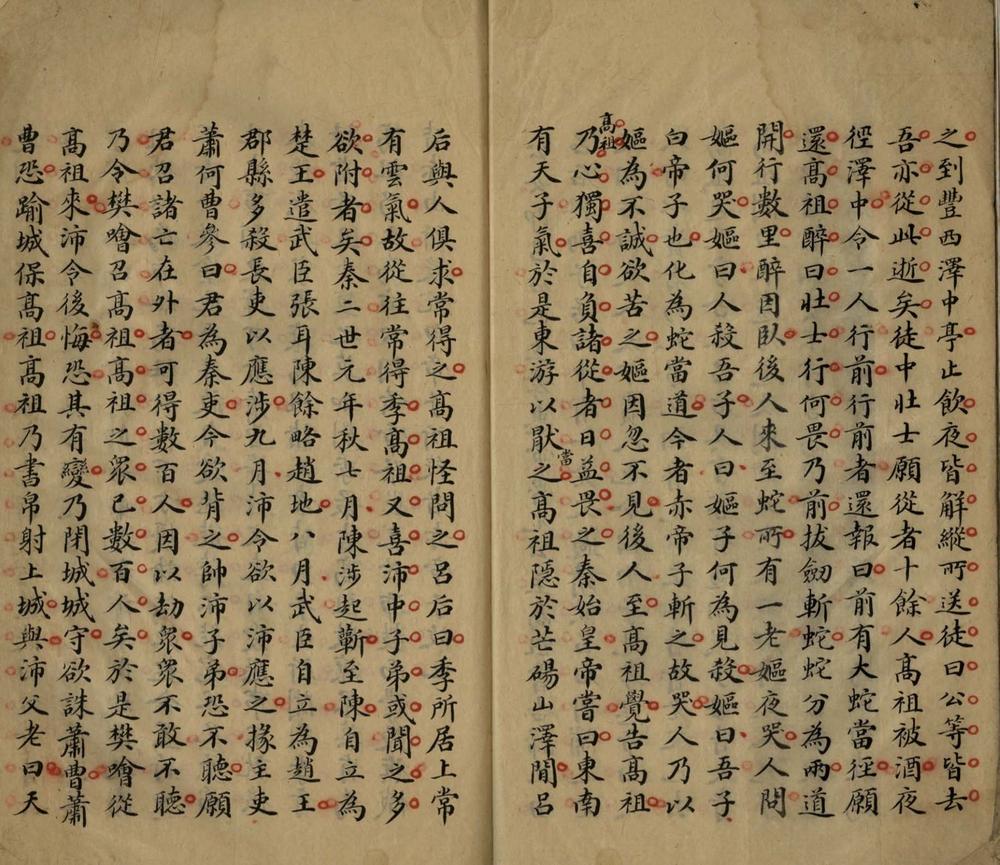 之到豐西澤中亭止飲夜皆解縱所送徒曰公等皆去
吾亦從此逝矣徒中壯士願從者十餘人髙祖被酒夜
徑澤中令一人行前行前者還報曰前有大蛇當徑願
還髙祖醉曰壯士行何畏乃前拔劒斬蛇蛇分為兩道
開行數里醉因臥後人來至蛇所有一老嫗夜哭人問
嫗何哭嫗曰人殺吾子人曰嫗子何為見殺嫗曰吾子
白帝子也化為蛇當道今者赤帝子斬之故哭人乃以
嫗為不誠欲苦之嫗因忽不見後人至髙祖覺告髙祖
髙祖乃心獨喜自負諸從者日益畏之秦始皇帝嘗曰東南
有天子氣於是東游以猒當之髙祖隱於芒碭山澤間呂
后與人俱求常得之髙祖怪問之呂后曰季所居上常
有雲氣故從往常得季髙祖又喜沛中子弟或聞之多
欲附者矣秦二世元年秋七月陳涉起蘄至陳自立為
楚王遣武臣張耳陳餘略趙地八月武臣自立為趙王
郡縣多殺長吏以應涉九月沛令欲以沛應之掾主吏
蕭何曹參曰君為秦吏今欲背之帥沛子弟恐不聽願
君召諸亡在外者可得數百人因以劫眾眾不敢不聽
乃令樊噲召髙祖髙祖之眾已數百人矣於是樊噲從
髙祖來沛令後悔恐其有變乃閉城城守欲誅蕭曹蕭
曹恐踰城保髙祖髙祖乃書帛射上城與沛父老曰天